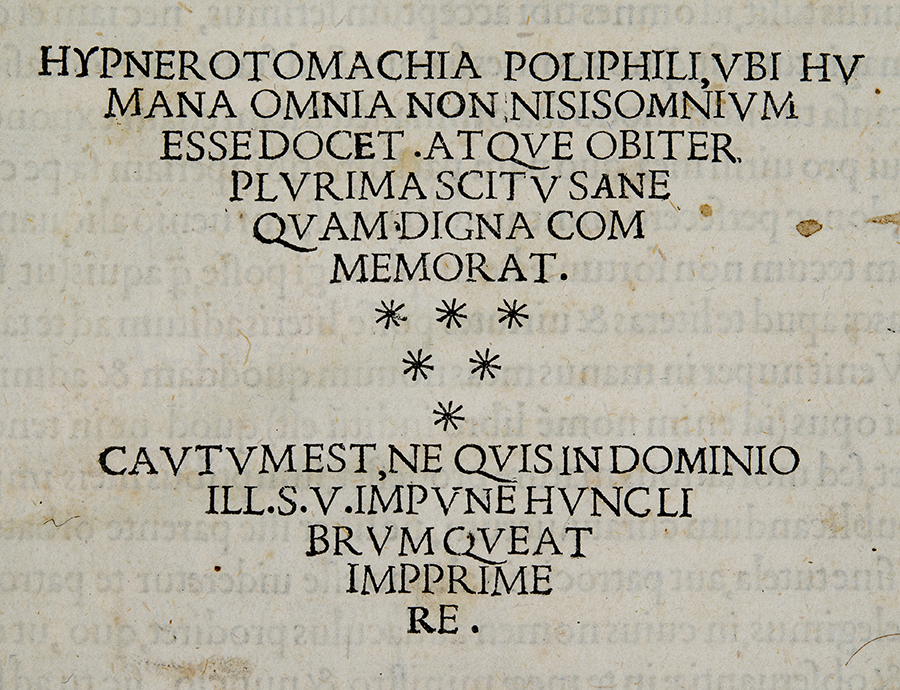 HYPNEROTOMACHIA POLIPHILI, VBI HV
MANA OMNIA NON NISISOMNIVM
ESSE DOCET . ATQVE OBITER
PLVRIMA SCITV SANE
QVAM DIGNA COM
MEMORAT.
* * *
* *
*
CAVTVM EST, NE QVIS IN DOMINIO
ILL.S.V.IMPVNE HVNC LI
BRVM QVEAT
IMPPRIME
RE .